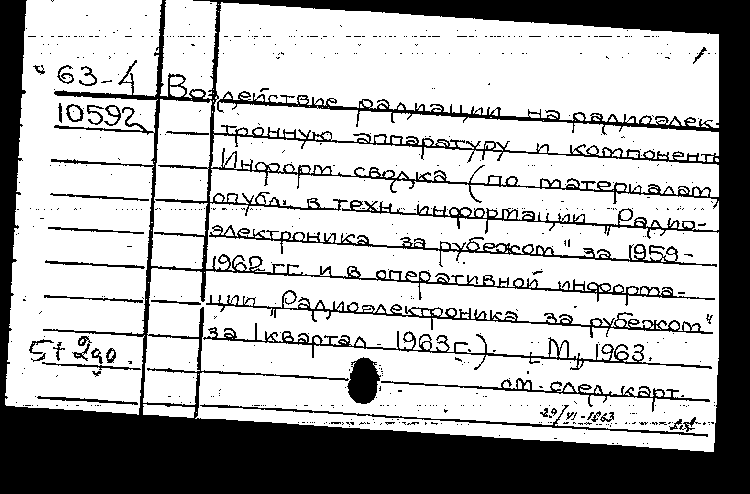 1
63-4 Воздействие радиации на радиоэлек-
10592 тронную аппаратуру и компоненты
Информ. сводка (по материалам,
опубл. в техн. информации „Радио-
электроника за рубежом" за 1959-
1962 гг. и в оперативной информа-
ции „Радиоэлектроника за рубежом"
за I квартал 1963 г.). [М., 1963.
5+2до.
см. след. карт.
29/VI-1963